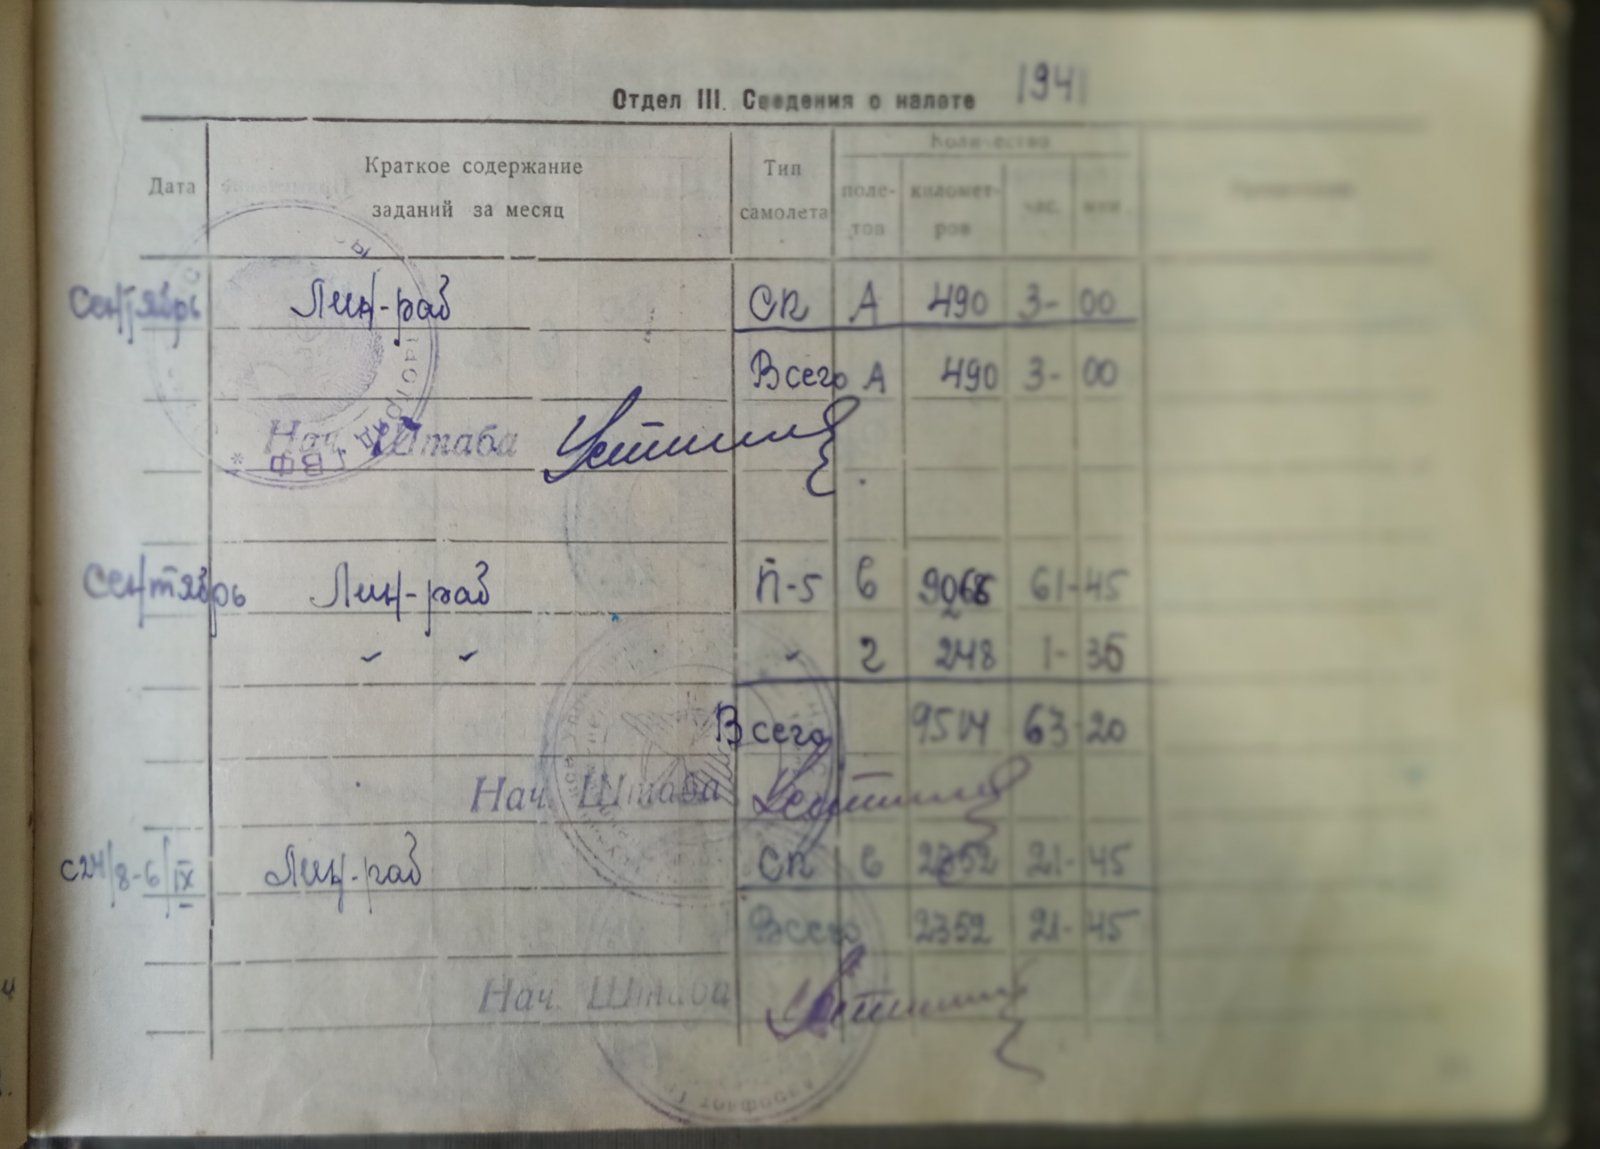 Отдел III. Сведения о налете 1941
Дата Краткое содержание заданий за месяц Тип самолета Количество полетов километров час. мин.
Сентябрь Лин-раб СП А 490 3- 00
Всего А 490 3- 00
Нач. Штаба
Сентябрь Лин-раб П-5 6 61-45
" " " 2 248 1- 35
Всего 9514 63-20
Нач. Штаба
с 24/8-6/IX Лин-раб СП 6 2352 21-45
Всего 2352 21-45
Нач. Штаба